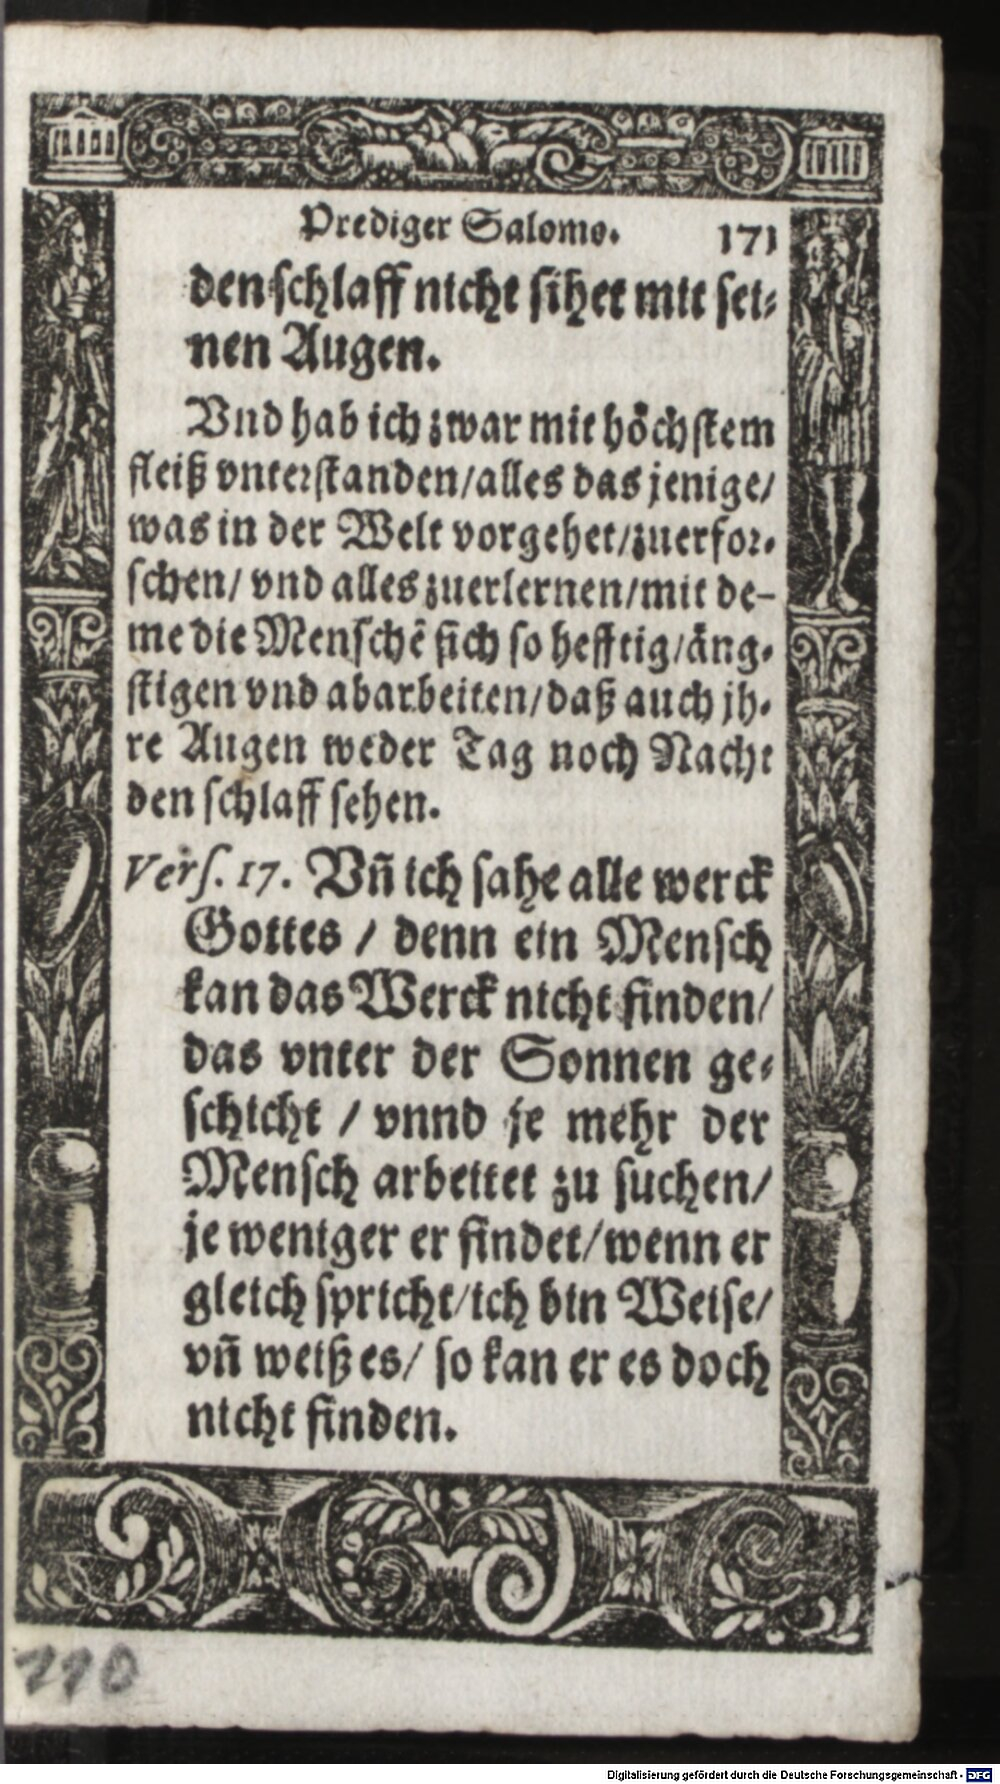 Prediger Salomo. 171
den schlaff nicht sihet mit sei-
nen Augen.
Vnd hab ich zwar mit höchstem
fleiß vnterstanden/alles das jenige/
was in der Welt vorgehet/zuerfor-
schen/ vnd alles zuerlernen/mit de-
me die Menschẽ sich so hefftig/äng-
stigen vnd abarbeiten/daß auch jh-
re Augen weder Tag noch Nacht
den schlaff sehen.
Vers. 17. Vñ ich sahe alle werck
Gottes / denn ein Mensch
kan das Werck nicht finden/
das vnter der Sonnen ge-
schicht / vnnd je mehr der
Mensch arbeitet zu suchen/
je weniger er findet/wenn er
gleich spricht/ich bin Weise/
vñ weiß es/ so kan er es doch
nicht finden.
110
Digitalisierung gefördert durch die Deutsche Forschungsgemeinschaft - DFG